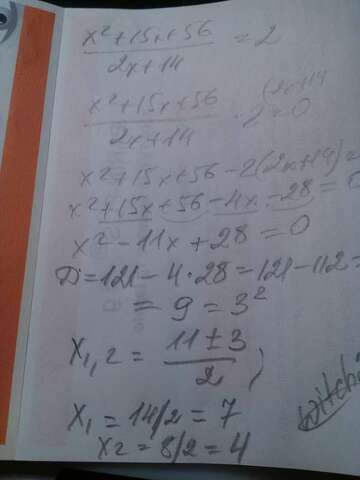 x²+15x+56 / 2x+14 = 2
x²+15x+56 / 2x+14 - 2 = 0 (2x+14
x²+15x+56-2(2x+14)=
x²+15x+56-4x-28=0
x²-11x+28=0
D=121-4·28=121-112=
=9=3²
x1,2 = 11±3 / 2
x1=14/2=7
x2=8/2=4
witch